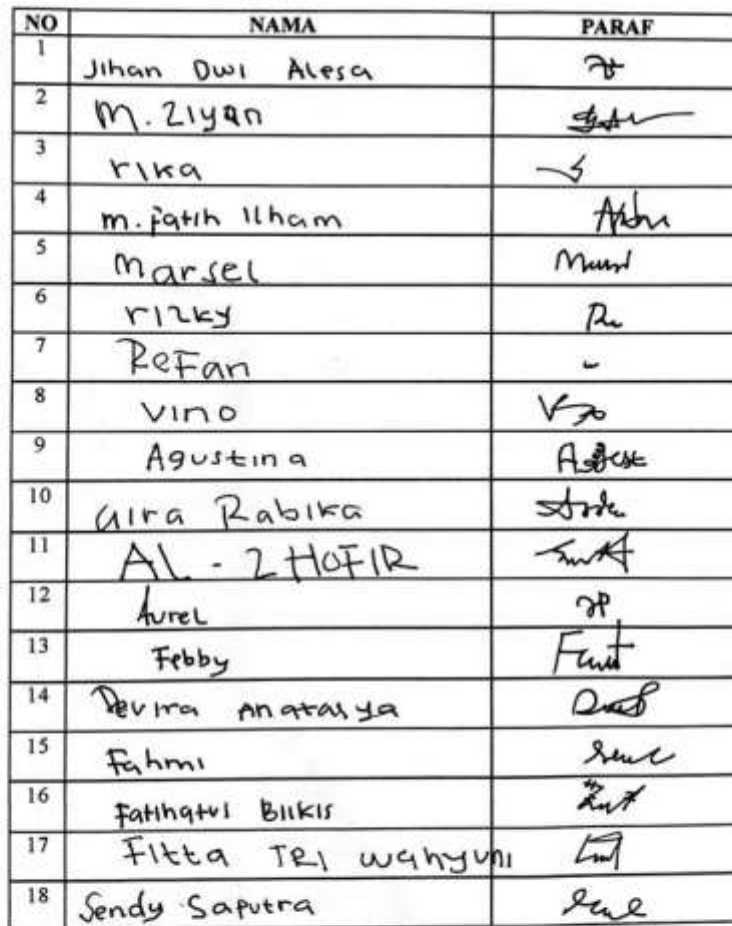 NO NAMA PARAF
1 Jihan Dwi Alesa
2 M. Ziyan
3 rika
4 m. fatih Ilham
5 Marsel
6 rizky
7 Refan
8 vino
9 Agustina
10 aira Rabika
11 AL - ZHOFIR
12 Aurel
13 Febby
14 Devira Anatasya
15 Fahmi
16 Fatihatul Bilkis
17 Fitta TRI wahyuni
18 Sendy Saputra